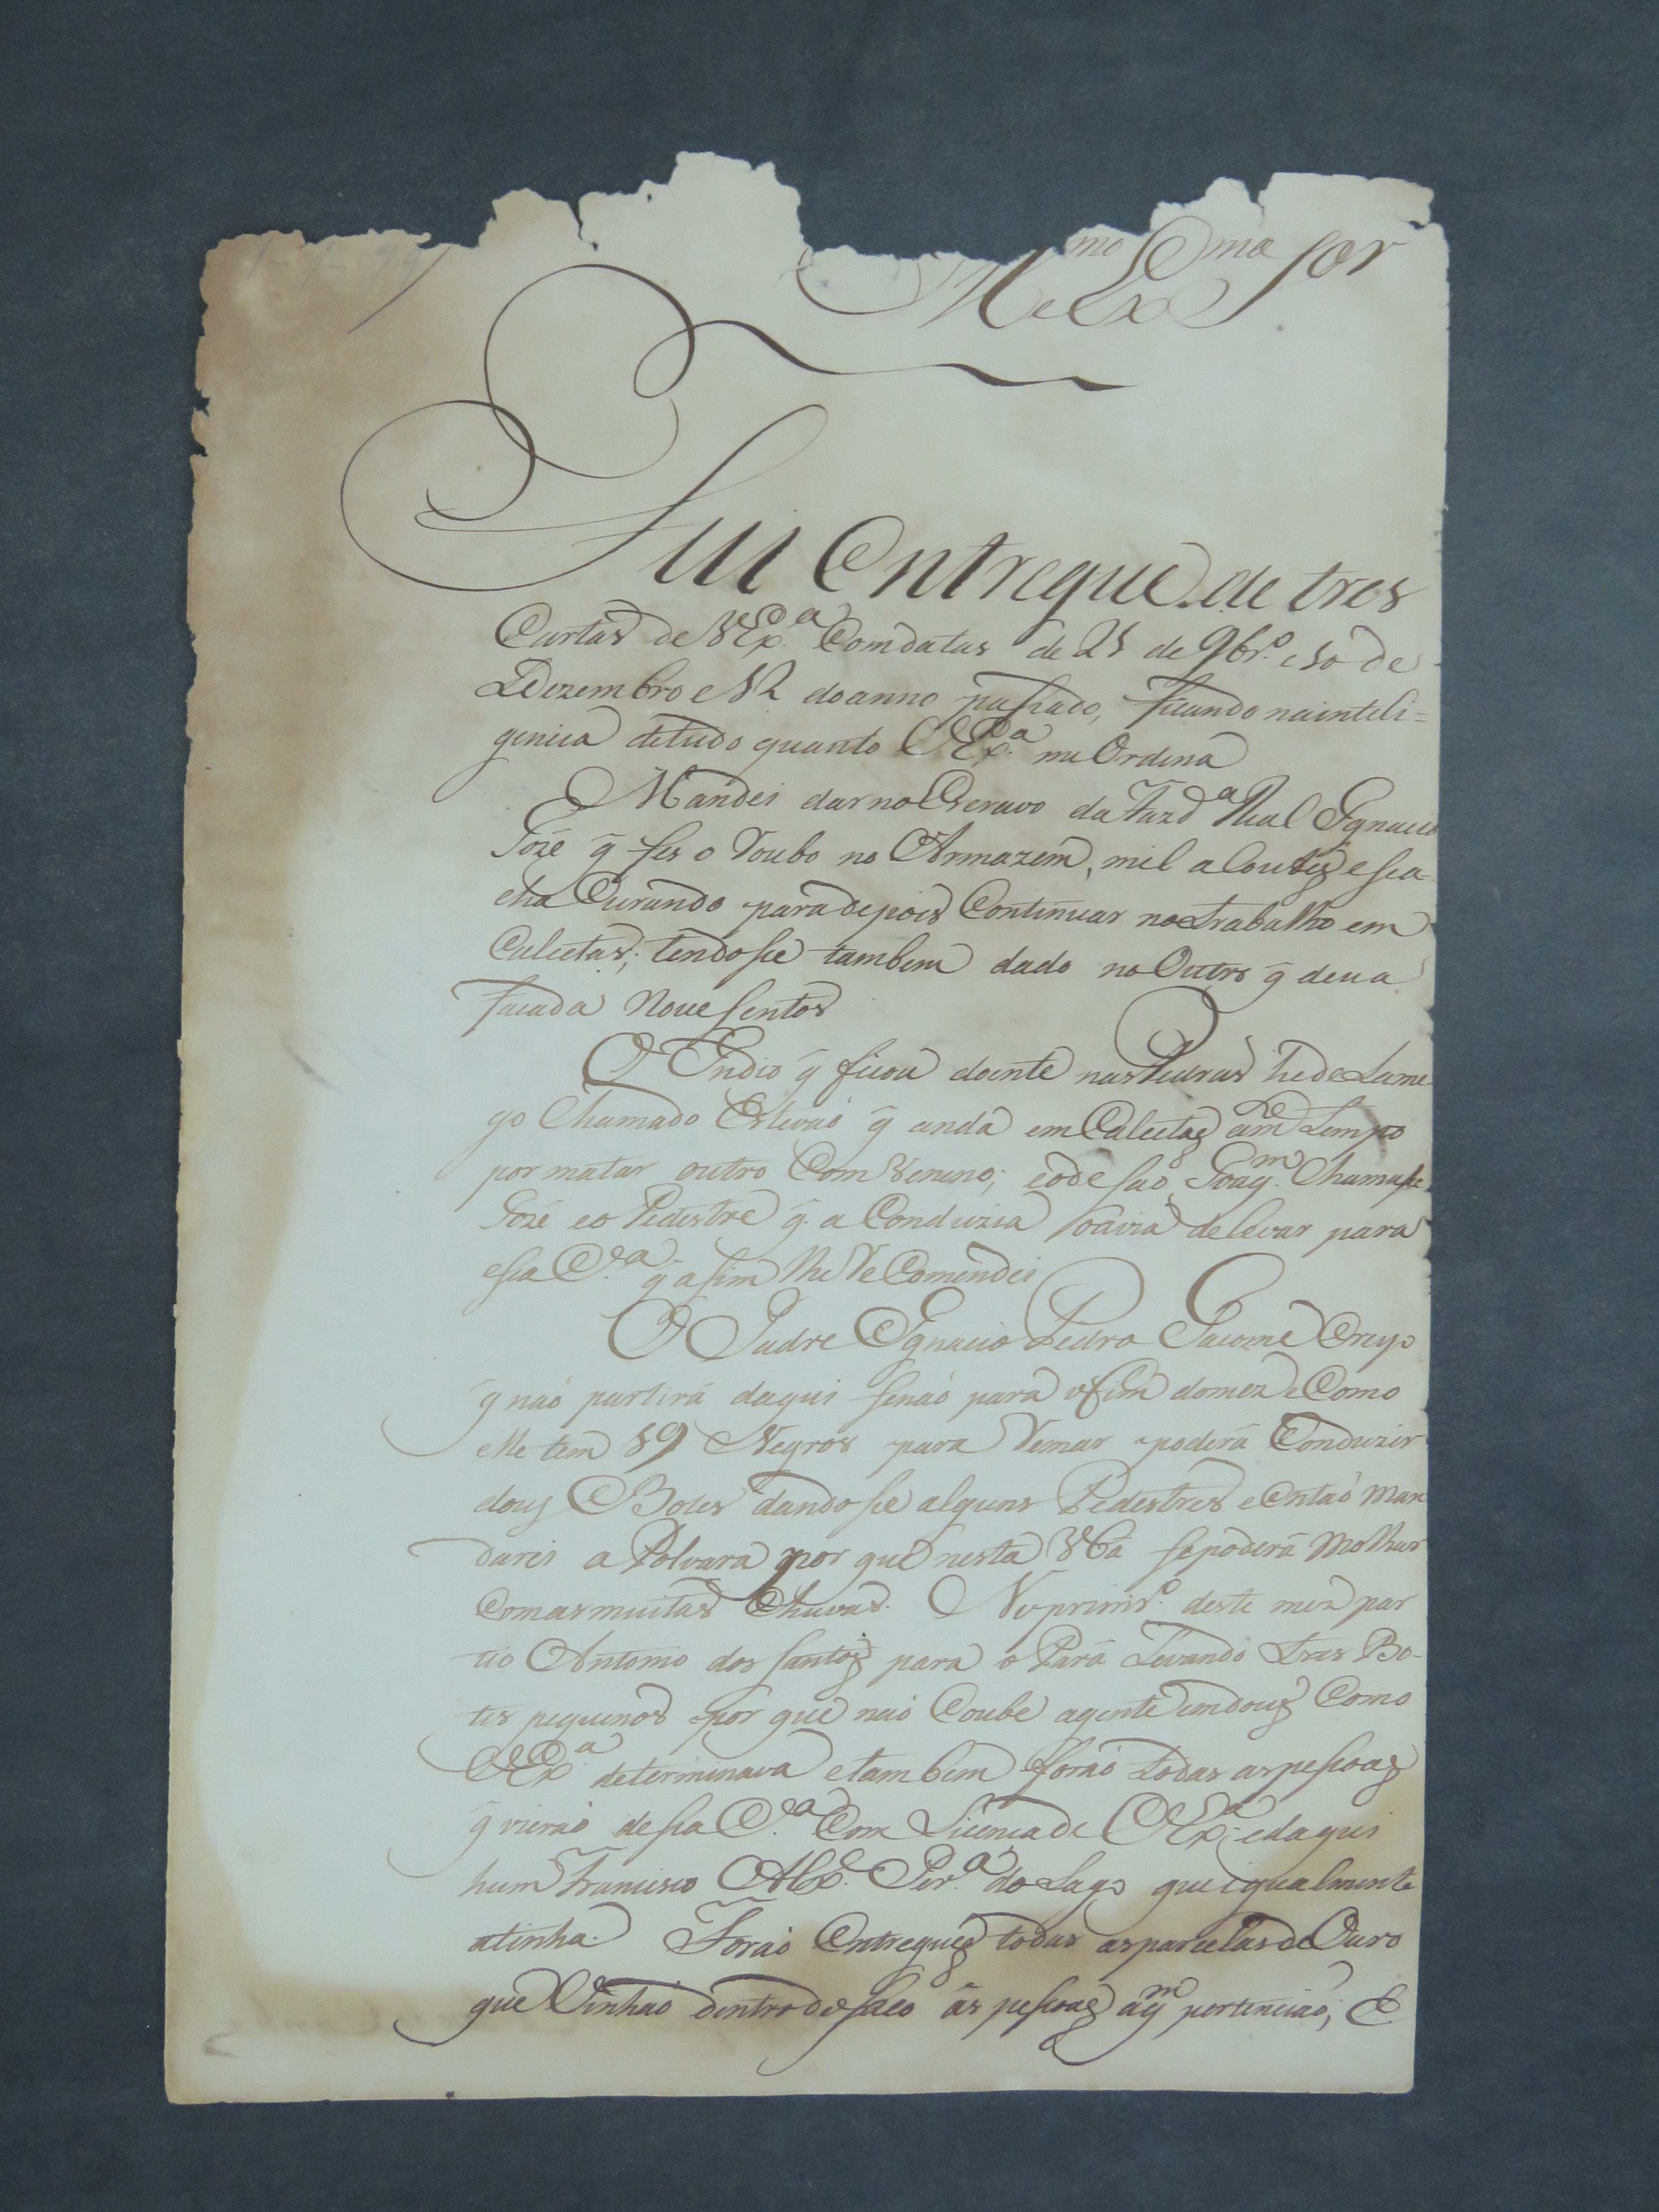 Il.mo e Ex.mo Snor
Fui Entregue de tres
Cartas de V Ex.a Com datas de 25 de 9br.o e 10 de
Dezembro e 12 do anno passado, ficando na inteli=
gencia de tudo quanto V Ex.a me Ordena
Mandei dar no Escravo da Fazd.a Real Ignacio
Jozé q̃ fes o Roubo no Armazem, mil a Coutes e se a
cha Curando para depois Continuar no trabalho em
Calcetas; tendose tambem dado no Outro q̃ deu a
facada Nove sentos
O Indio q̃ ficou doente nas Pedras he de Lame
go Chamado Estevaõ q̃ anda em Calcetas a m.to tempo
por matar outro Com Veneno; e o de saõ Joaq.m Chamase
Jozé e o Pedestre q̃ a Conduzia o avia de levar para
esa V.a q̃ asim lhe Re Comendei
O Padre Ignacio Pedro Jacome Creyo
q̃ naõ partirá daqui senaõ para o fim do mez e Como
elle tem 19 Negros para Remar poderá Conduzir
dous Botes dandose alguns Pedestres e Entaõ Man
darei a Polvara por que nesta V.a se poderá Molhar
Com as muitas Chuvas. No prim.ro deste mez par
tio Antonio dos santos para o Pará Levando tres Bo-
tes pequenos por que naõ Coube a gente em dous Como
V Ex.a determinava e tambem foraõ todas as pesoas
q̃ vieraõ desa V.a Com Licença de V Ex.a e daqui
hum Francisco Alz. Per.a do Lago que igualmente
a tinha. Foraõ Entregues todas as parcelas de Ouro
que Vinhaõ dentro do saco ás pesoas a q.m pertenciaõ; E